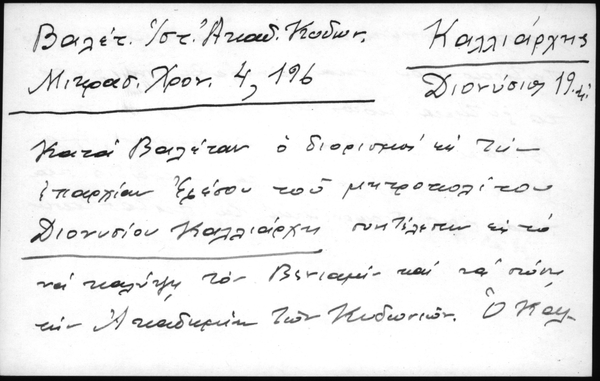 Βαλέτ. Ἱστ. Ἀκαδ. Κυδων.
Μικρασ. Χρον. 4, 196
Καλλιάρχης
Διονύσιος 19.
Κατά Βαλέταν ὁ διορισμός εἰς τήν
ἐπαρχίαν Ἐφέσου τοῦ μητροπολίτου
Διονυσίου Καλλιάρχη συνετέλεσεν εἰς τό
νά καλύψῃ τόν Βενιαμίν καί νά σώσῃ
τήν Ἀκαδημίαν τῶν Κυδωνιῶν. Ὁ Καλ-